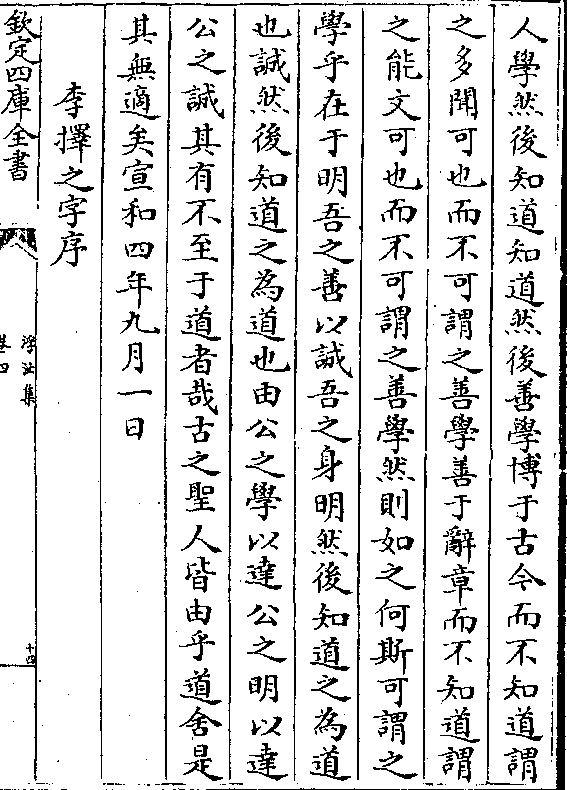 人學然後知道知道然後善學博于古今而不知道謂
之多聞可也而不可謂之善學善于辭章而不知道謂
之能文可也而不可謂之善學然則如之何斯可謂之
學乎在于明吾之善以誠吾之身明然後知道之為道
也誠然後知道之為道也由公之學以達公之明以達
公之誠其有不至于道者哉古之聖人皆由乎道舍是
其無適矣宣和四年九月一日
李擇之字序
欽定四庫全書
浮沚集
卷四
十四